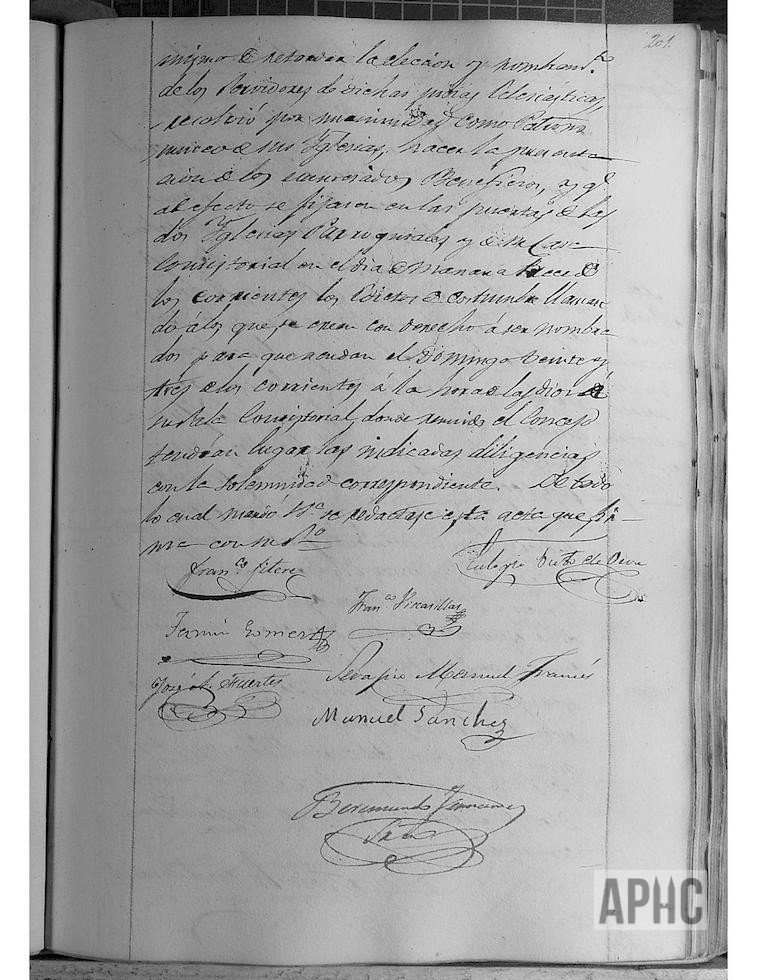 201.
animo de retardar la eleccion y nombram.to
de los Servidores de dichas piezas Eclesiasticas,
resolvió por unanimidad como Patrono
unico de sus Yglesias, hacer la presenta
cion de los enunciados Beneficios, y q.e
al efecto se fijasen en las puertas de las
dos Yglesias Parroquiales y de su Casa
Consistorial en el dia de mañana trece de
los corrientes los Edictos de costumbre llaman
do á los que se crean con derecho á ser nombra
dos para que acudan el Domingo veinte y
tres de los corrientes á la hora de las diez á
su Sala Consistorial, donde reunido el Concejo
tendrán lugar las indicadas diligencias
con la solemnidad correspondiente. De todo
lo cual mandó S.a se redactase esta acta que fir
ma
Fran.co
Fran.co Vicasillas
Fermin Gomez
José Huertes
Serapio Manuel Frances
Manuel Sanchez
Beremundo
Srio
APHC